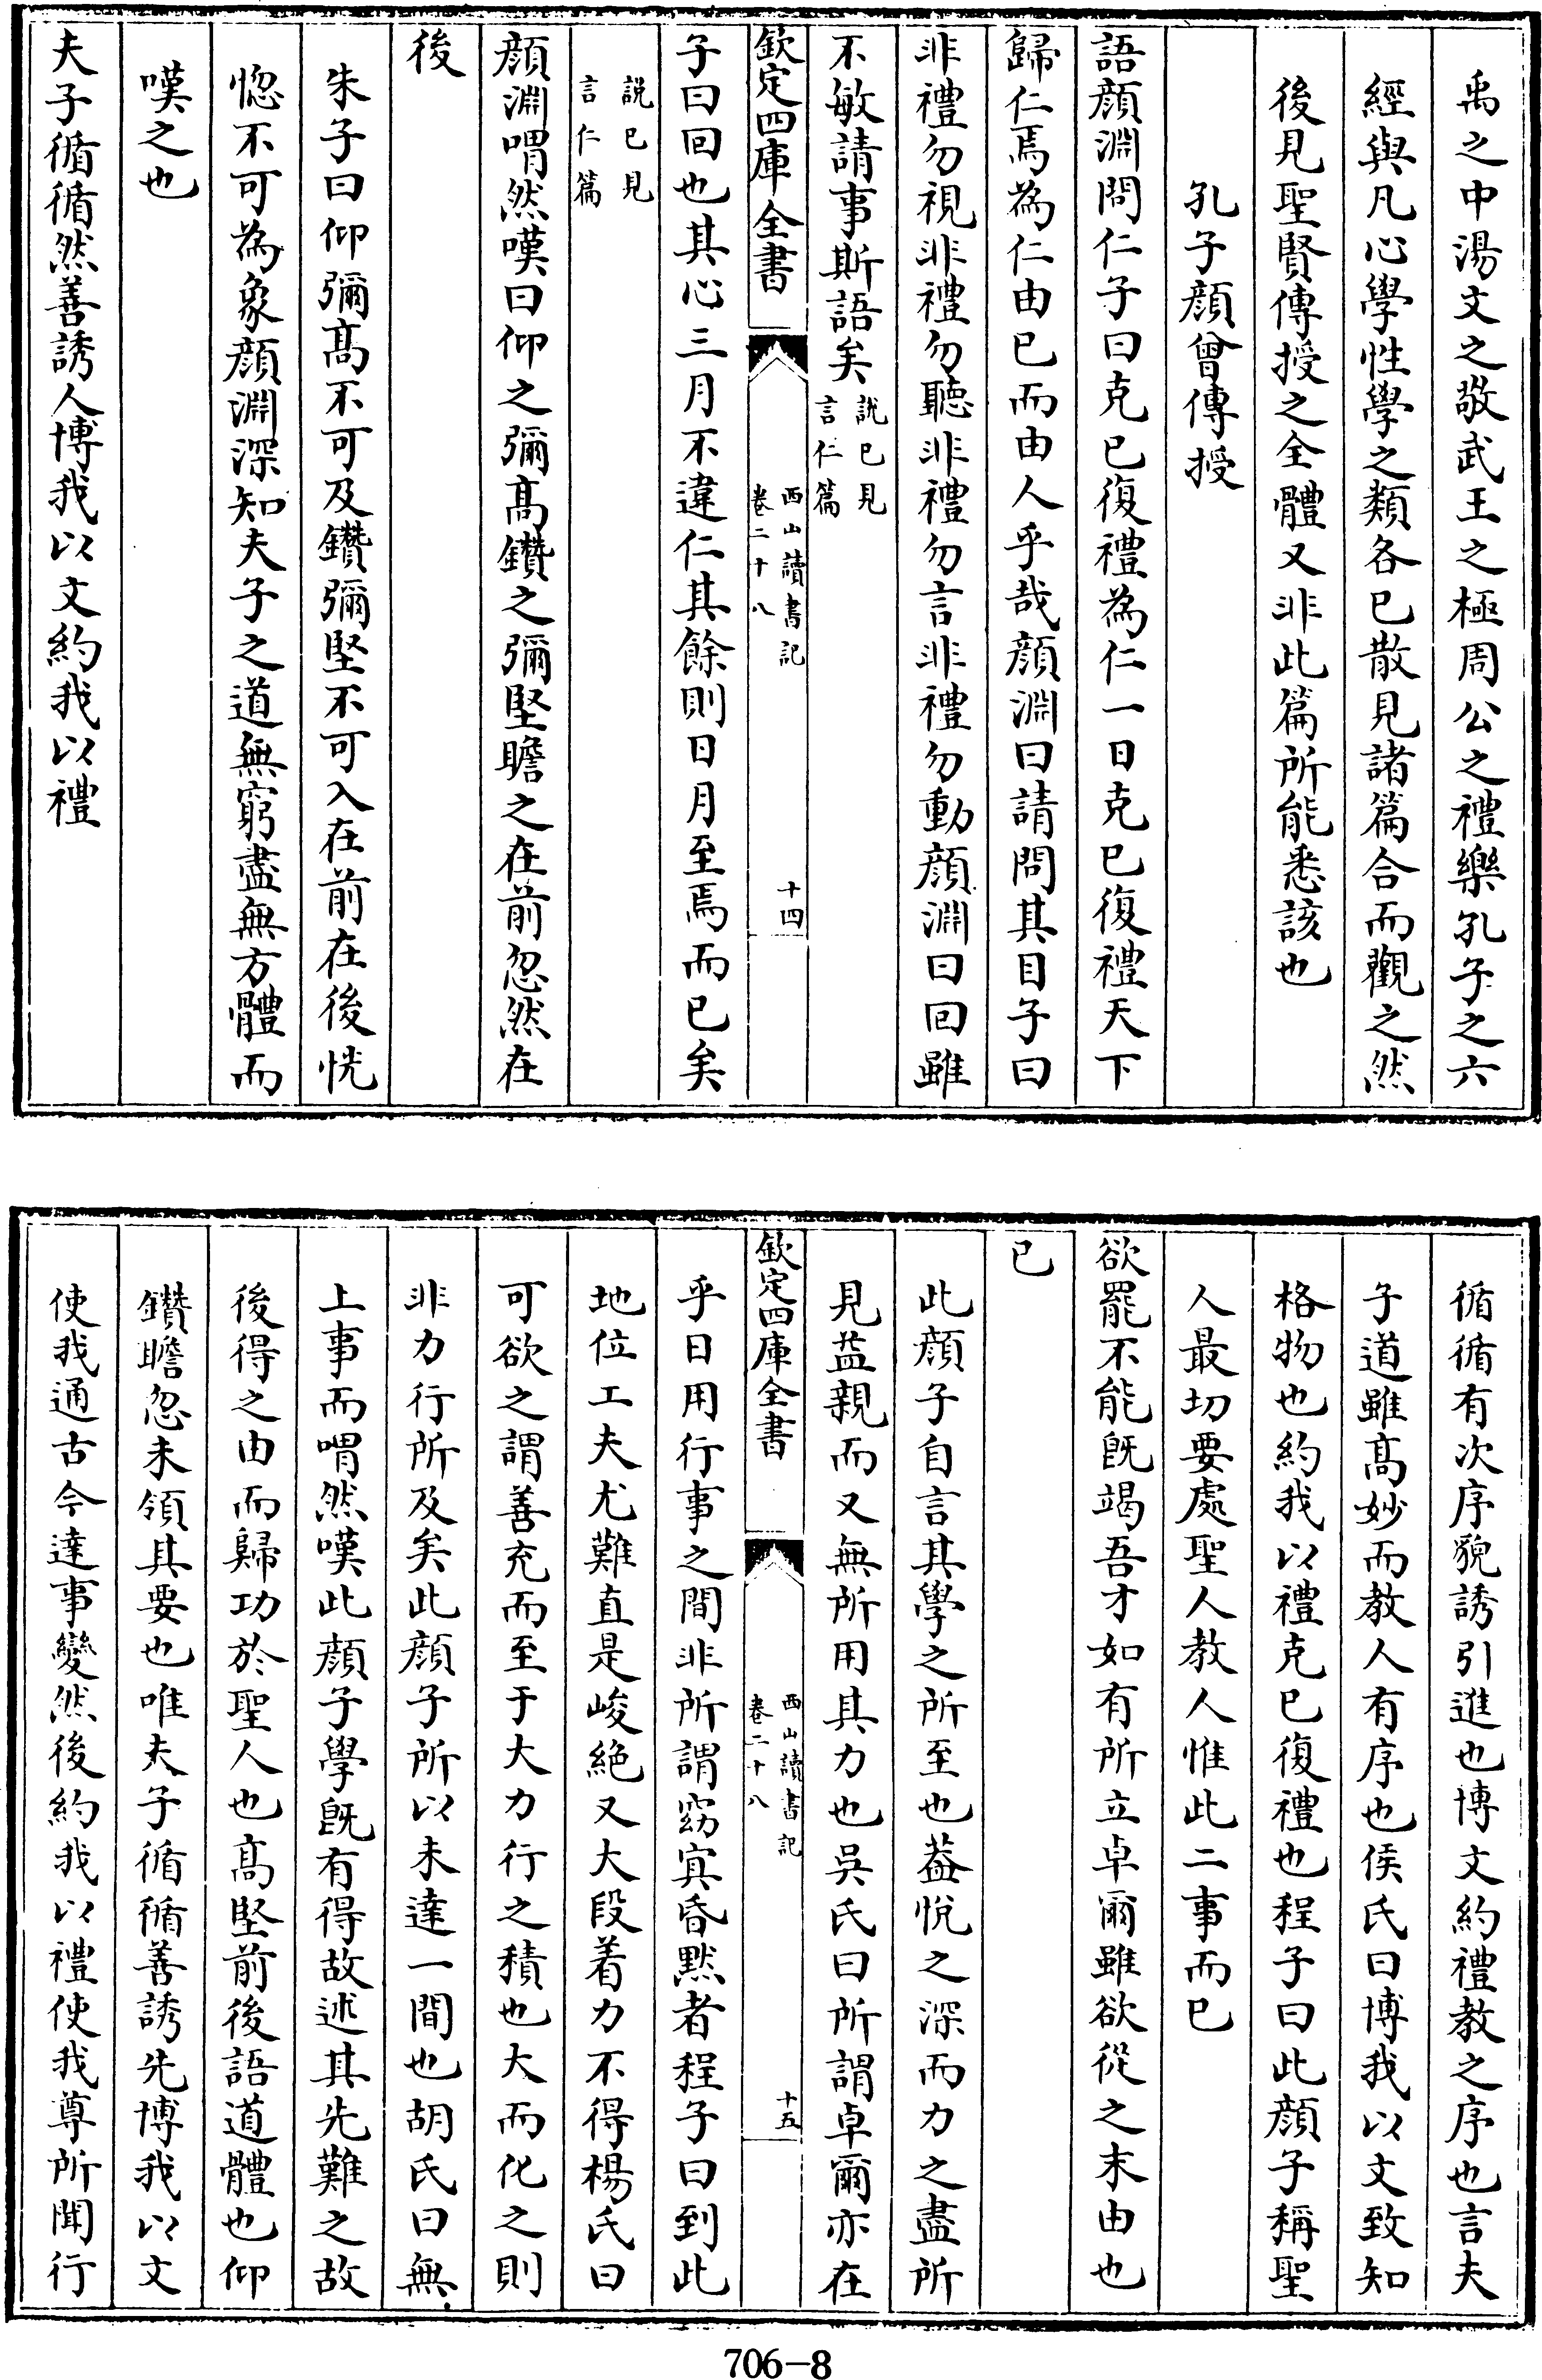 禹之中湯文之敬武王之極周公之禮樂孔子之六
經與凡心學性學之類各已散見諸篇合而觀之然
後見聖賢傳授之全體又非此篇所能悉該也
孔子顏曾傳授
語顏淵問仁子曰克已復禮為仁一日克已復禮天下
歸仁焉為仁由已而由人乎哉顏淵曰請問其目子曰
非禮勿視非禮勿聽非禮勿言非禮勿動顏淵曰回雖
不敏請事斯語矣說已見言仁篇
欽定四庫全書 西山讀書記卷二十八 十四
子曰回也其心三月不違仁其餘則日月至焉而已矣
說已見言仁篇
顏淵喟然嘆曰仰之彌髙鑽之彌堅瞻之在前忽然在
後
朱子曰仰彌髙不可及鑽彌堅不可入在前在後恍
惚不可為象顏淵深知夫子之道無窮盡無方體而
嘆之也
夫子循循然善誘人博我以文約我以禮
循循有次序貌誘引進也博文約禮教之序也言夫
子道雖髙妙而教人有序也侯氏曰博我以文致知
格物也約我以禮克已復禮也程子曰此顏子稱聖
人最切要處聖人教人惟此二事而已
欲罷不能旣竭吾才如有所立卓爾雖欲從之末由也
已
此顏子自言其學之所至也葢悅之深而力之盡所
見益親而又無所用其力也吳氏曰所謂卓爾亦在
欽定四庫全書 西山讀書記卷二十八 十五
乎日用行事之間非所謂窈冥昏黙者程子曰到此
地位工夫尤難直是峻絶又大段着力不得楊氏曰
可欲之謂善充而至于大力行之積也大而化之則
非力行所及矣此顏子所以未達一間也胡氏曰無
上事而喟然嘆此顏子學旣有得故述其先難之故
後得之由而歸功於聖人也髙堅前後語道體也仰
鑽瞻忽未領其要也唯夫子循循善誘先博我以文
使我通古今達事變然後約我以禮使我尊所聞行
706-8